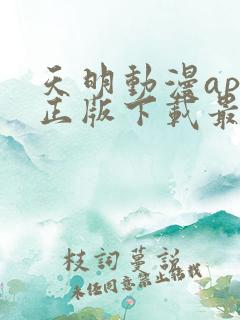 天明動漫ap
正版下載最
枝詞蔓説
未經同意禁止轉載